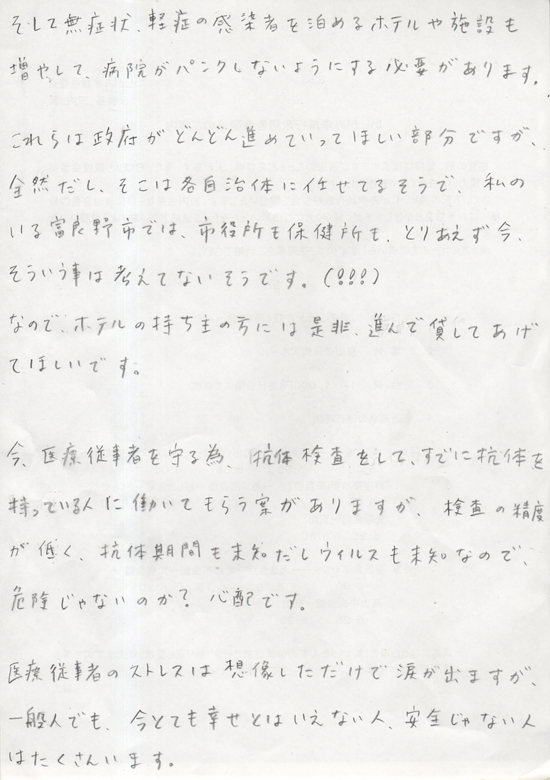 そして無症状、軽症の感染者を泊めるホテルや施設も
増やして、病院がパンクしないようにする必要があります。
これらは政府がどんどん進めていってほしい部分ですが、
全然だし、そこは各自治体に任せてるそうで、私の
いる富良野市では、市役所も保健所も、とりあえず今、
そういう事は考えてないそうです。(!!!)
なので、ホテルの持ち主の方には是非、進んで貸してあげ
てほしいです。
今、医療従事者を守る為、抗体検査をして、すでに抗体を
持っている人に働いてもらう案がありますが、検査の精度
が低く、抗体期間も未知だしウィルスも未知なので、
危険じゃないのか?心配です。
医療従事者のストレスは想像しただけで涙が出ますが、
一般人でも、今とても幸せとはいえない人、安全じゃない人
はたくさんいます。